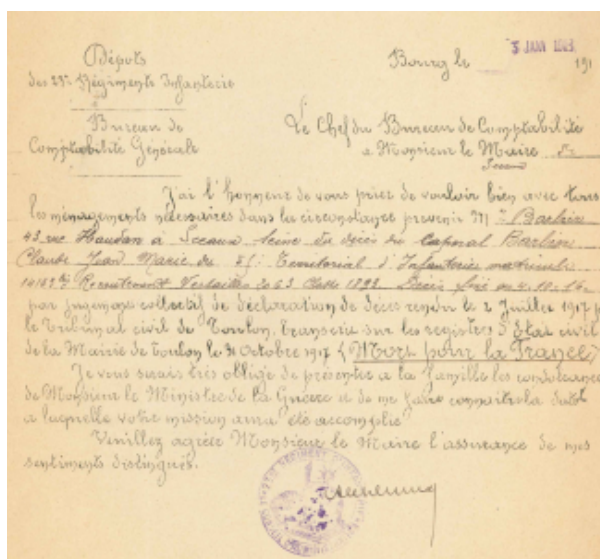 Dépôts
des 23e Régiments Infanterie
Bourg le 3 JANV 191
Bureau de
Comptabilité Générale
Le Chef du Bureau de Comptabilité
a Monsieur le Maire de
J'ai l'honneur de vous prier de vouloir bien avec tous
les ménagements nécessaires dans la circonstance prévenir Barbin
43 rue Houdan à Sceaux Seine du décès du Caporal Barbin
Claude Jean Marie du Territorial d'Infanterie matricule
Recrutement Versailles Classe Décès fixé au 4.10.16
par jugement collectif de déclaration de décès rendu le 2 Juillet 1917 p
le Tribunal civil de Toulon, transcrit sur les registres d'État civil
de la Mairie de Toulon le 31 Octobre 1917 (Mort pour la France)
Je vous serais très obligé de présenter a la famille les condoléances
de Monsieur le Ministre de la Guerre et de me faire connaitre la date
a laquelle votre mission aura été accomplie
Veuillez agréer Monsieur le Maire l'assurance de mes
sentiments distingués.